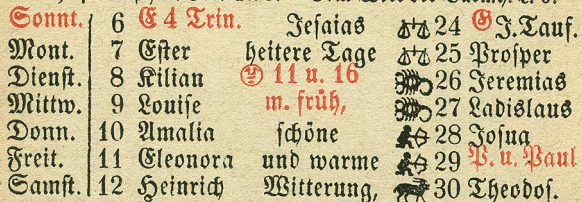 Sonnt. 6 E 4 Trin. Jesaias 24 G J. Tauf.
Mont. 7 Ester heitere Tage 25 Prosper
Dienst. 8 Kilian 11 u. 16 26 Jeremias
Mittw. 9 Louise m. früh, 27 Ladislaus
Donn. 10 Amalia schöne 28 Josua
Freit. 11 Eleonora und warme 29 P. u. Paul
Samst. 12 Heinrich Witterung, 30 Theodos.